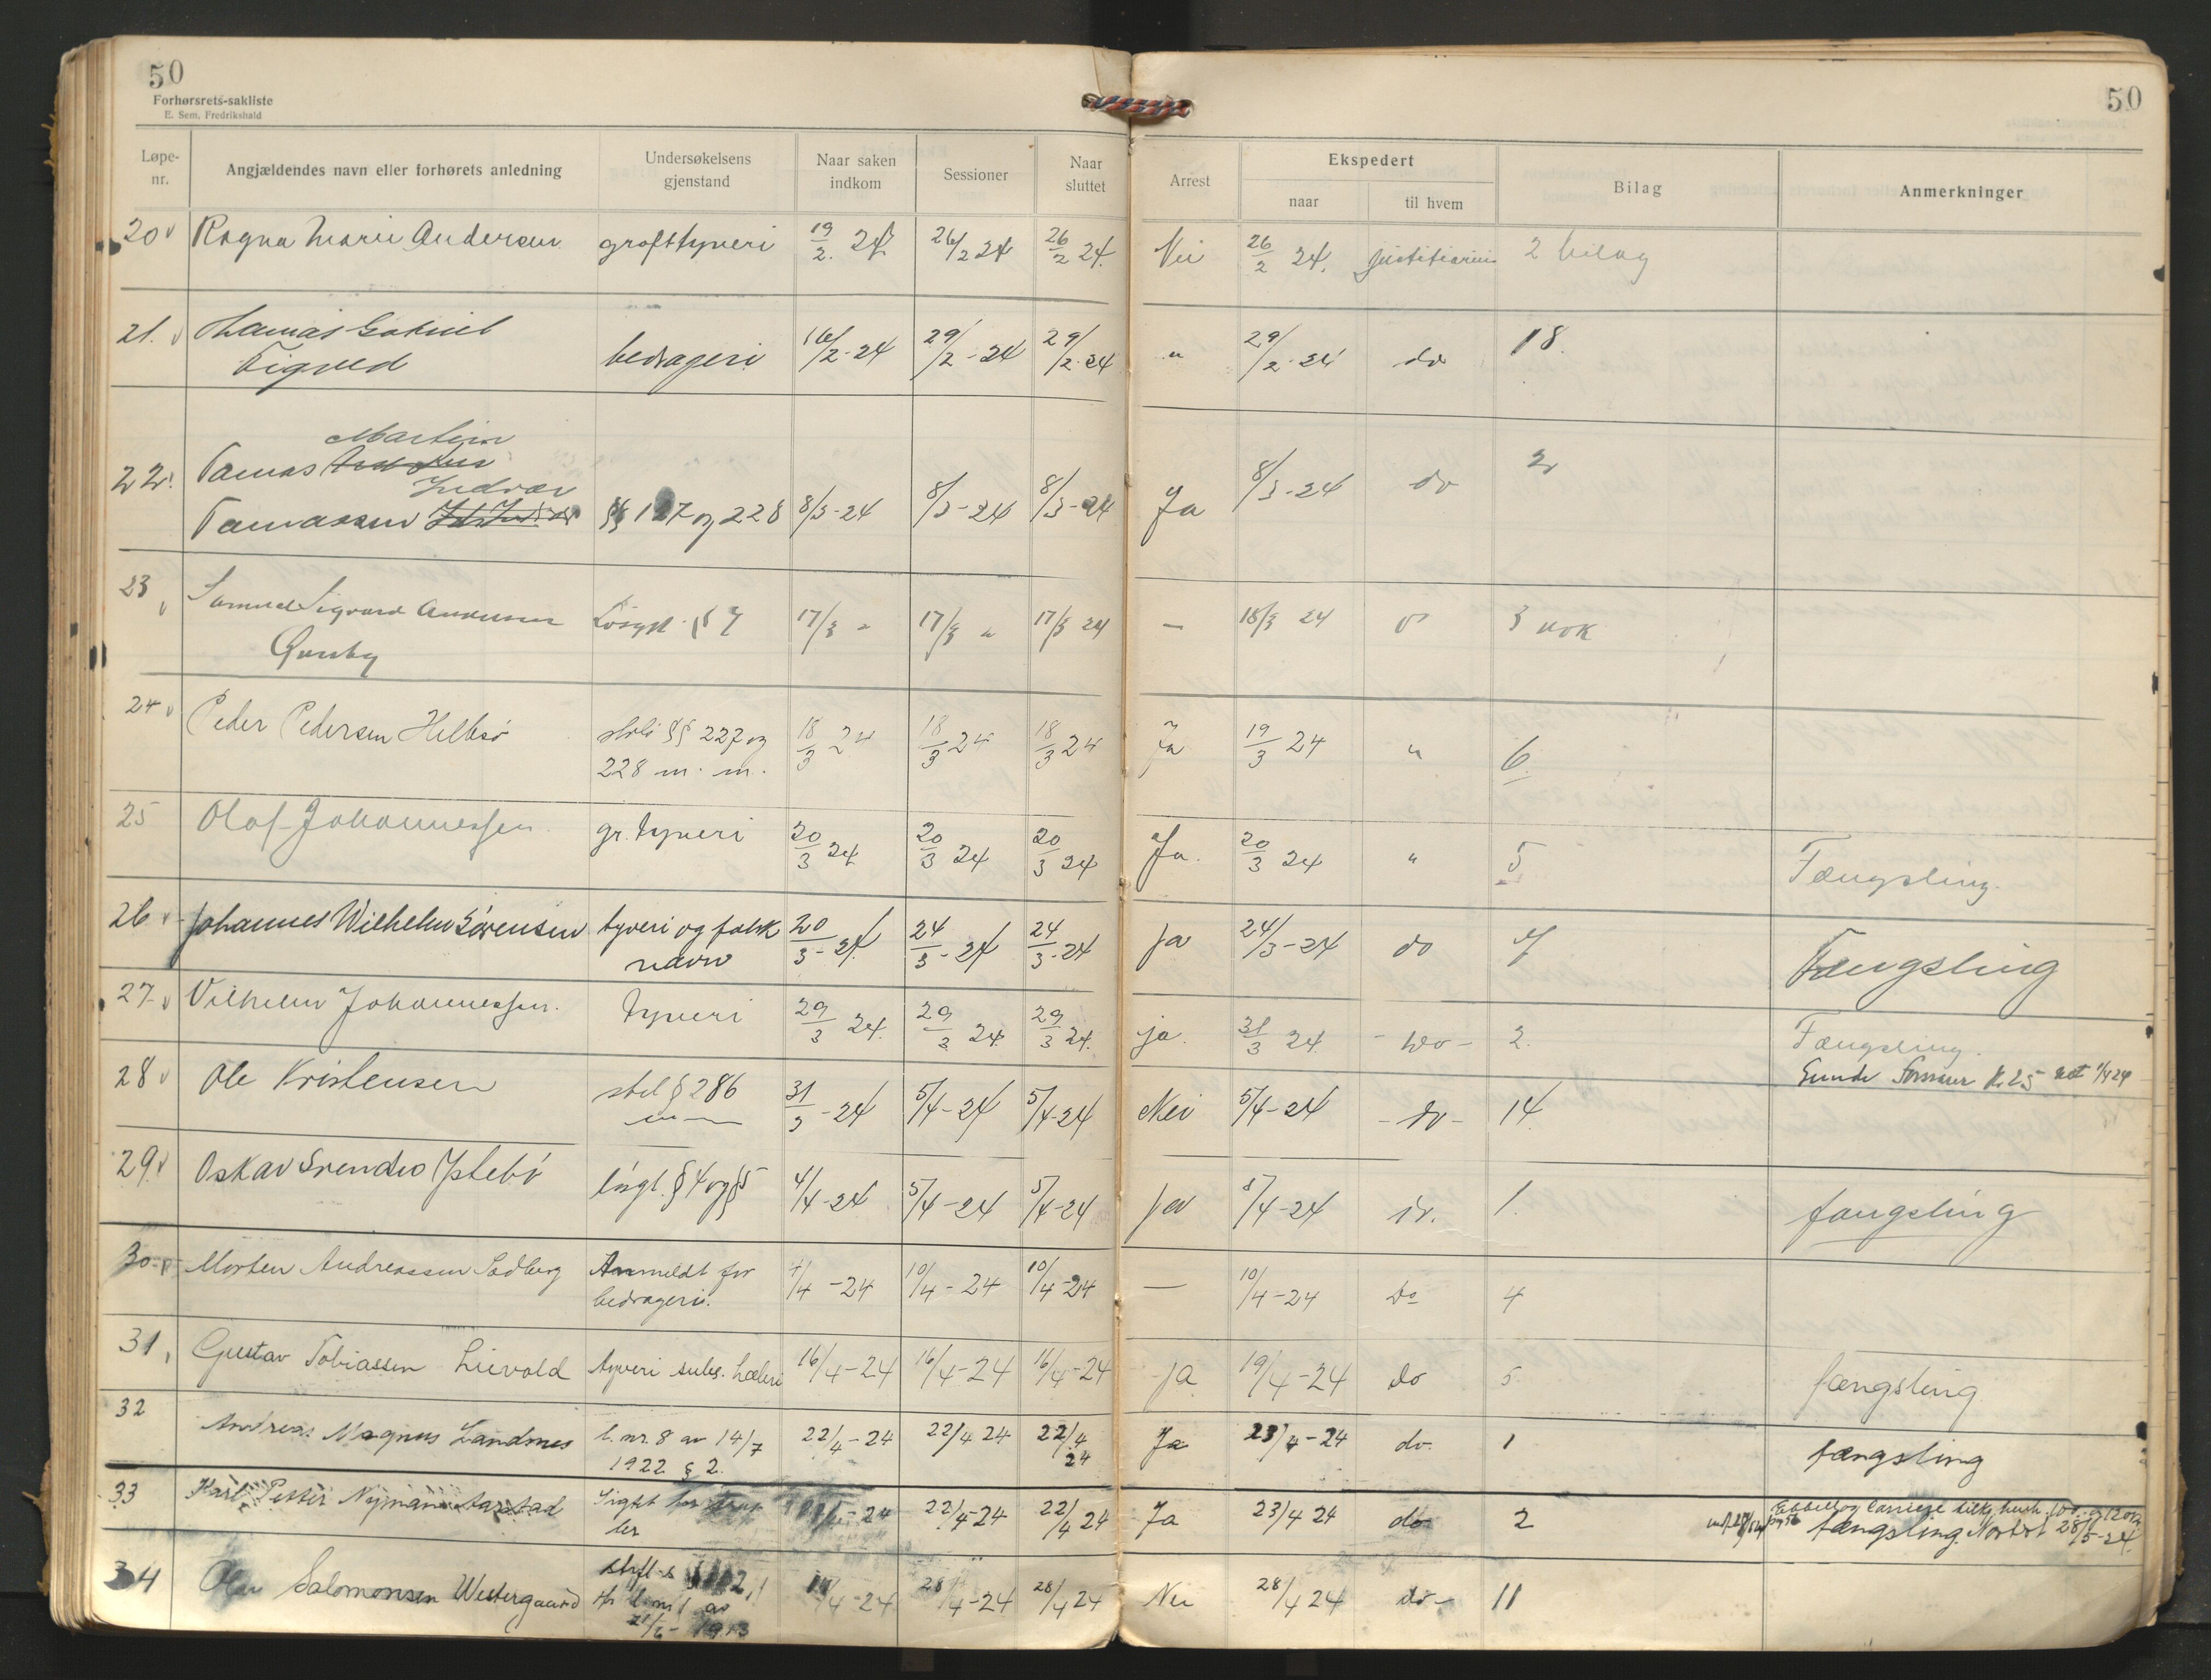 50
50
Forhørsrets-sakliste
E. Sem, Fredrikshald
Løpe-nr. Angjældendes navn eller forhørets anledning Undersøkelsens gjenstand Naar saken indkom Sessioner Naar sluttet Arrest Ekspedert naar til hvem Bilag Anmerkninger
20 Ragna Marie Andersen groft tyveri 19/2. 24 26/2 24 26/2 24. Nei 26/2 24. justitiarius 2 bilag
21. Gabriel bedrageri 16/2-24 29/2-24 29/2-24 " 29/2-24 do 18.
Tigved
Martin
22. Tamas
Indvær
Tamassen §§ 127 og 228 8/3-24 8/3-24 8/3-24 Ja 8/3-24 do 2
23 Samuel Sigvard Andersen § 7 17/3 " 17/3 " 17/3 24 — 18/3 24 3 nok
24 Peder Pedersen Helles strl §§ 227 og 18/3 24 18/3 24 18/3 24 Ja 19/3 24 " 6.
228 m. m.
25 Olaf Johannessen gr. tyveri 20/3 24 20/3 24 20/3 24 Ja. 20/3 24 " 5 Fængsling.
26 Johannes Wilhelm Sörensen tyveri og falsk 20/3-24 24/3-24 24/3-24 ja 24/3-24 do 7 Fængsling
navn
27 Vilhelm Johannessen. tyveri 29/3 24. 29/3 24. 29/3 24. ja. 31/3 24 - do - 2. Fængsling.
28 Ole Kristensen strl § 286 31/3-24 5/4-24 5/4-24 Nei 5/4-24 - do - 14.
29 Oskar Svendro Ystebö lösgl. § 4 og § 5 4/4-24 5/4-24 5/4-24 ja 5/4-24 do. 1. fængsling
30 Morten Andreassen Anmeldt for 7/4-24 10/4-24 10/4-24 — 10/4-24 Do 4
bedrageri.
31 Gustav Tobiassen Lievold tyveri subs. hæleri 16/4-24 16/4-24 16/4-24 ja 19/4-24 do 5 fængsling
32 Andreas Magnus Landmes l. nr. 8 av 14/7 22/4-24 22/4 24 22/4 24 Ja 23/4-24 do. 1 fængsling
1922 § 2.
33 Karl Petter Nymann Aarstad Sigtet for 22/4-24 22/4-24 22/4 24 Ja 23/4 24 do 2 fængsling.
34 Salomonsen Westergaard 28/4-24 28/4 24 Nei 28/4 24 do - 11
l. nr 1 av
1913